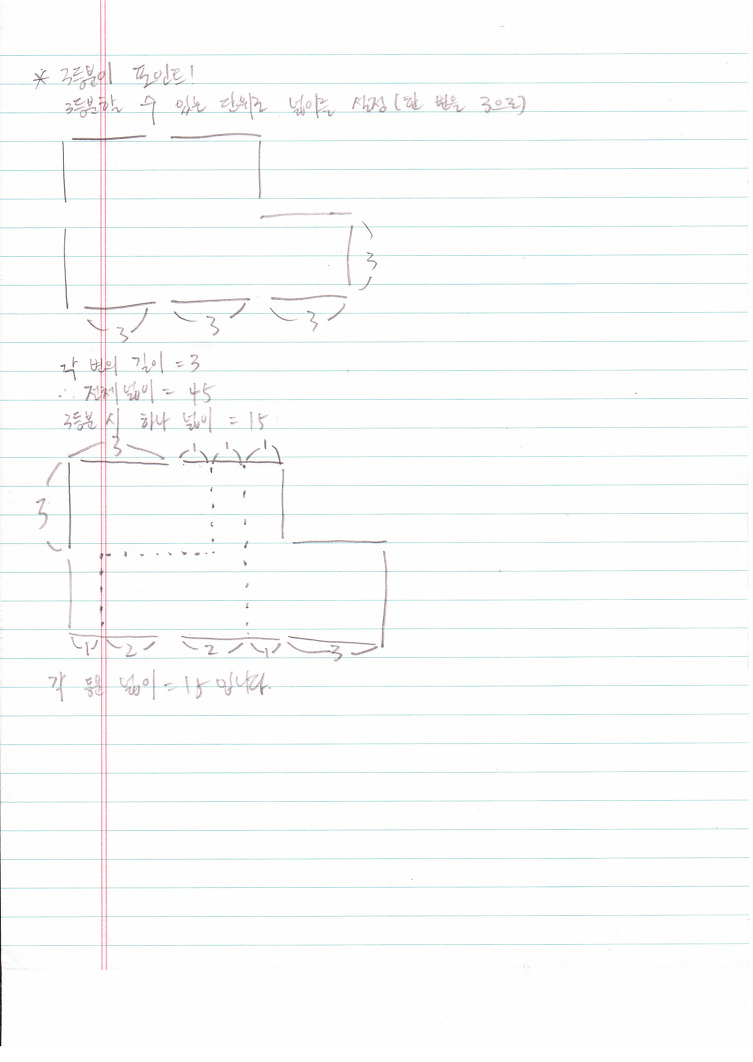 * 3등분이 포인트!
3등분할 수 있는 단위로 넓이를 설정 (한 변을 3으로)
3
3 3 3
각 변의 길이 = 3
∴ 전체 넓이 = 45
3등분 시 하나 넓이 = 15
3 1 1 1
3
1 2 2 1 3
각 등분 넓이 = 15 입니다.